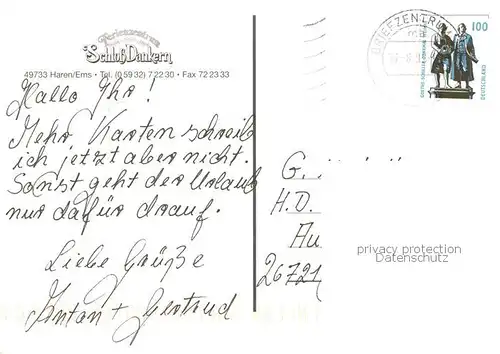 Ferienzentrum
Schloß Dankern
49733 Haren/Ems • Tel. (0 59 32) 7 22 30 • Fax 72 23 33
Hallo Ihr!
Mehr Karten schreib
ich jetzt aber nicht.
Sonst geht der Urlaub
nur dafür drauf.
Liebe Grüße
Anton + Gertrud
BRIEFZENTRUM
100
DEUTSCHLAND
G.
H.D.
Au
26721
privacy protection
Datenschutz